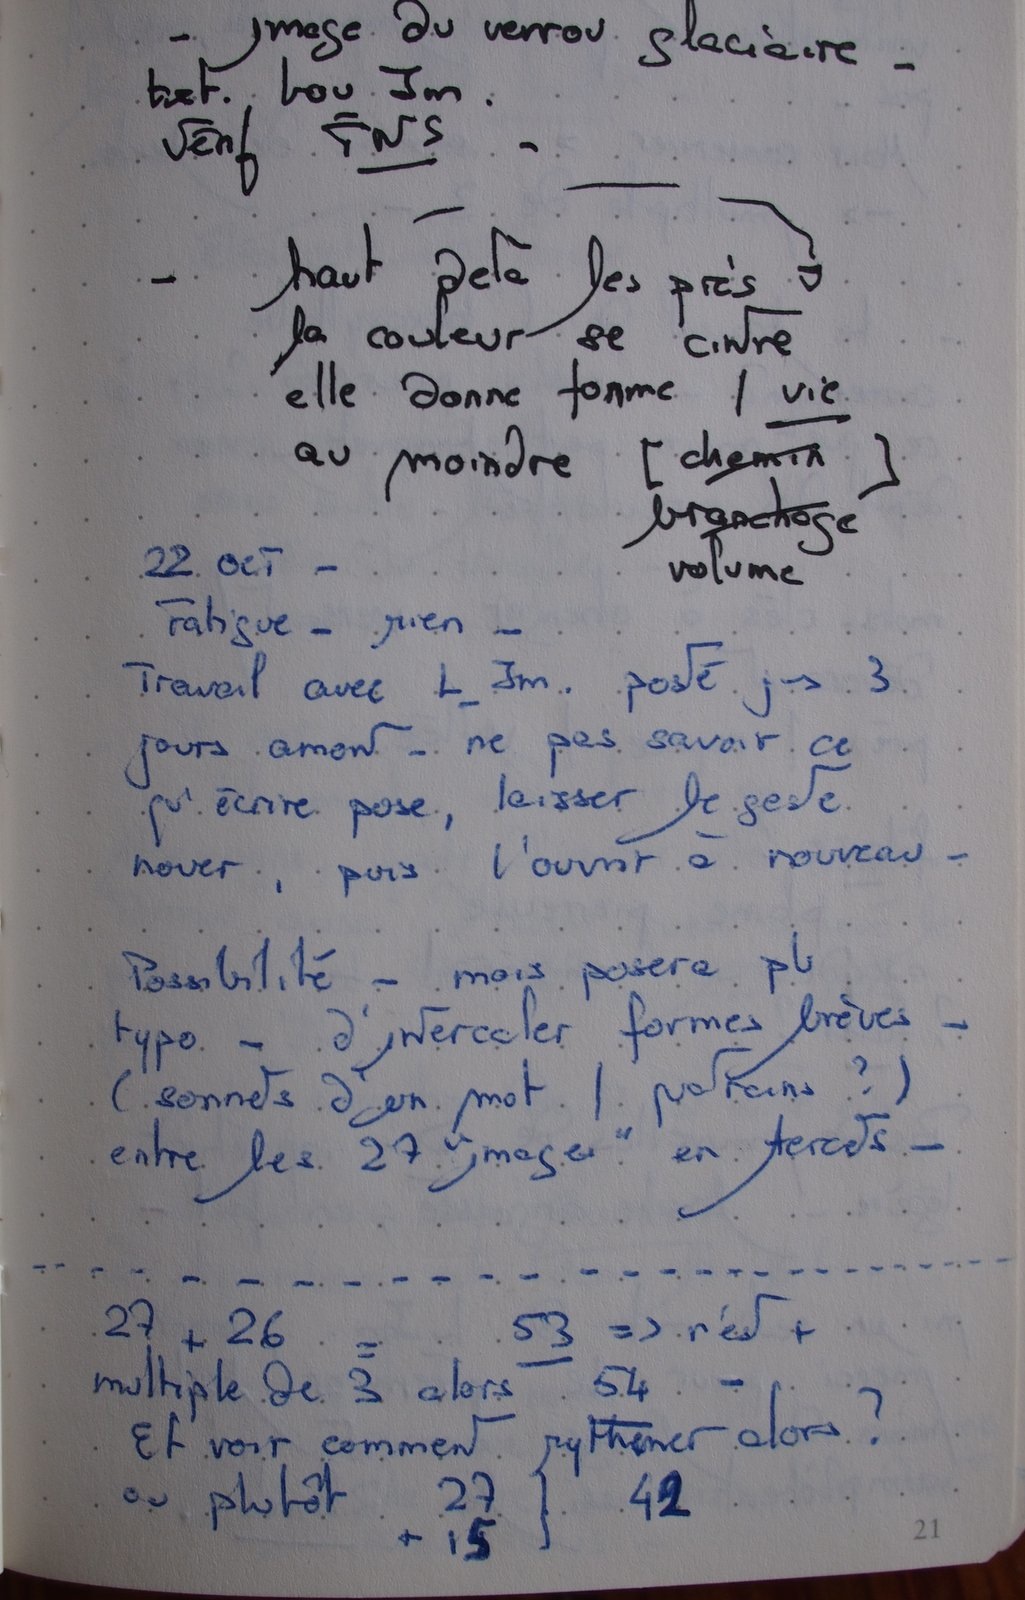 - image du verrou glaciaire -
Im.
Vérif
- haut delà les près
la couleur se cintre
elle donne forme / vie
au moindre [chemin]
branchage
volume
22 oct -
Fatigue - rien -
Travail avec L_Im. posé 3
jours amont - ne pas savoir ce
qu'écrire pose, laisser le geste
nouer, puis l'ouvrir à nouveau -
Possibilité - mais posera pb
typo - d'intercaler formes brèves -
(sonnets d'un mot / quatrains ?)
entre les 27 "images" en tercets -
27 + 26 = 53 => n'est +
multiple de 3 alors 54 -
Et voir comment rythmer alors ?
ou plutôt 27 } 42
+ 15
21